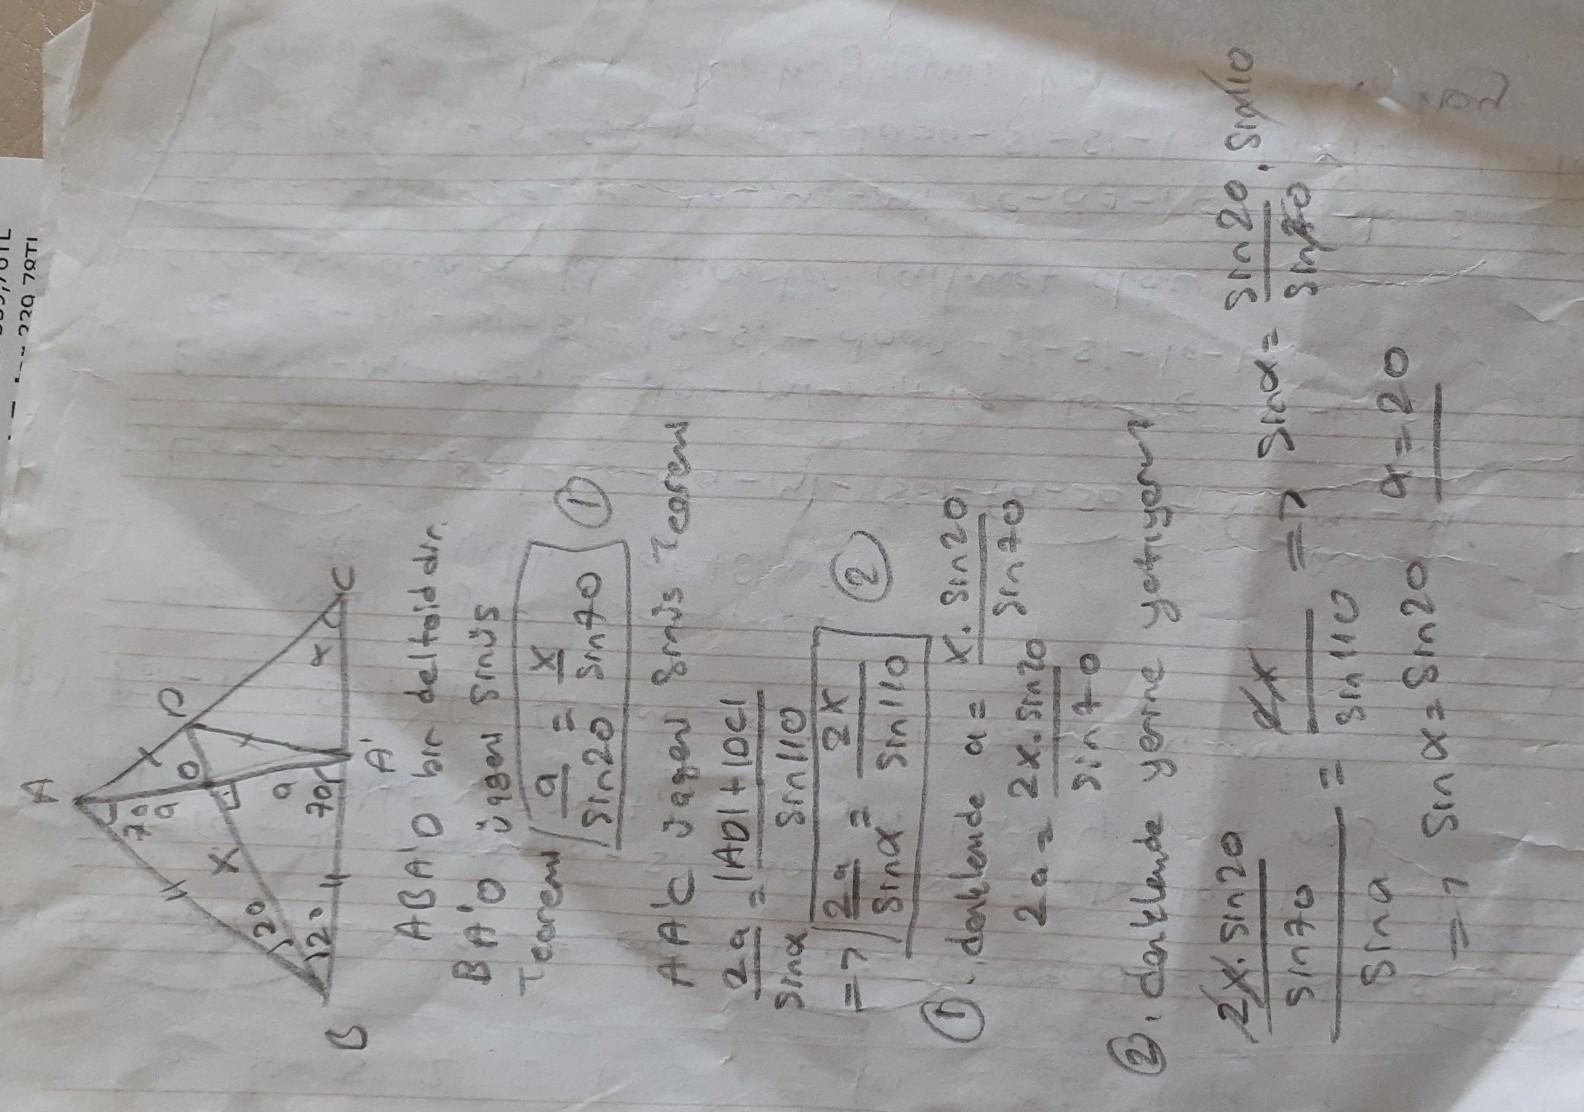 A
70
a
O
D
x
20
20
a
70
α
B
A'
C
ABA'D bir deltoiddir.
BA'O üçgeni sinüs
Teoremi a/sin20 = x/sin70 ①
AA'C üçgeni sinüs Teoremi
2a/sinα = |AD|+|DC|/sin110
=> 2a/sinα = 2x/sin110 ②
①. denklemde a = x.sin20/sin70
2a = 2x.sin20/sin70
②. denklemde yerine yazıyorum
2x.sin20/sin70/sinα = 2x/sin110 => sinα = sin20/sin70 . sin110
=> sinα = sin20 α = 20